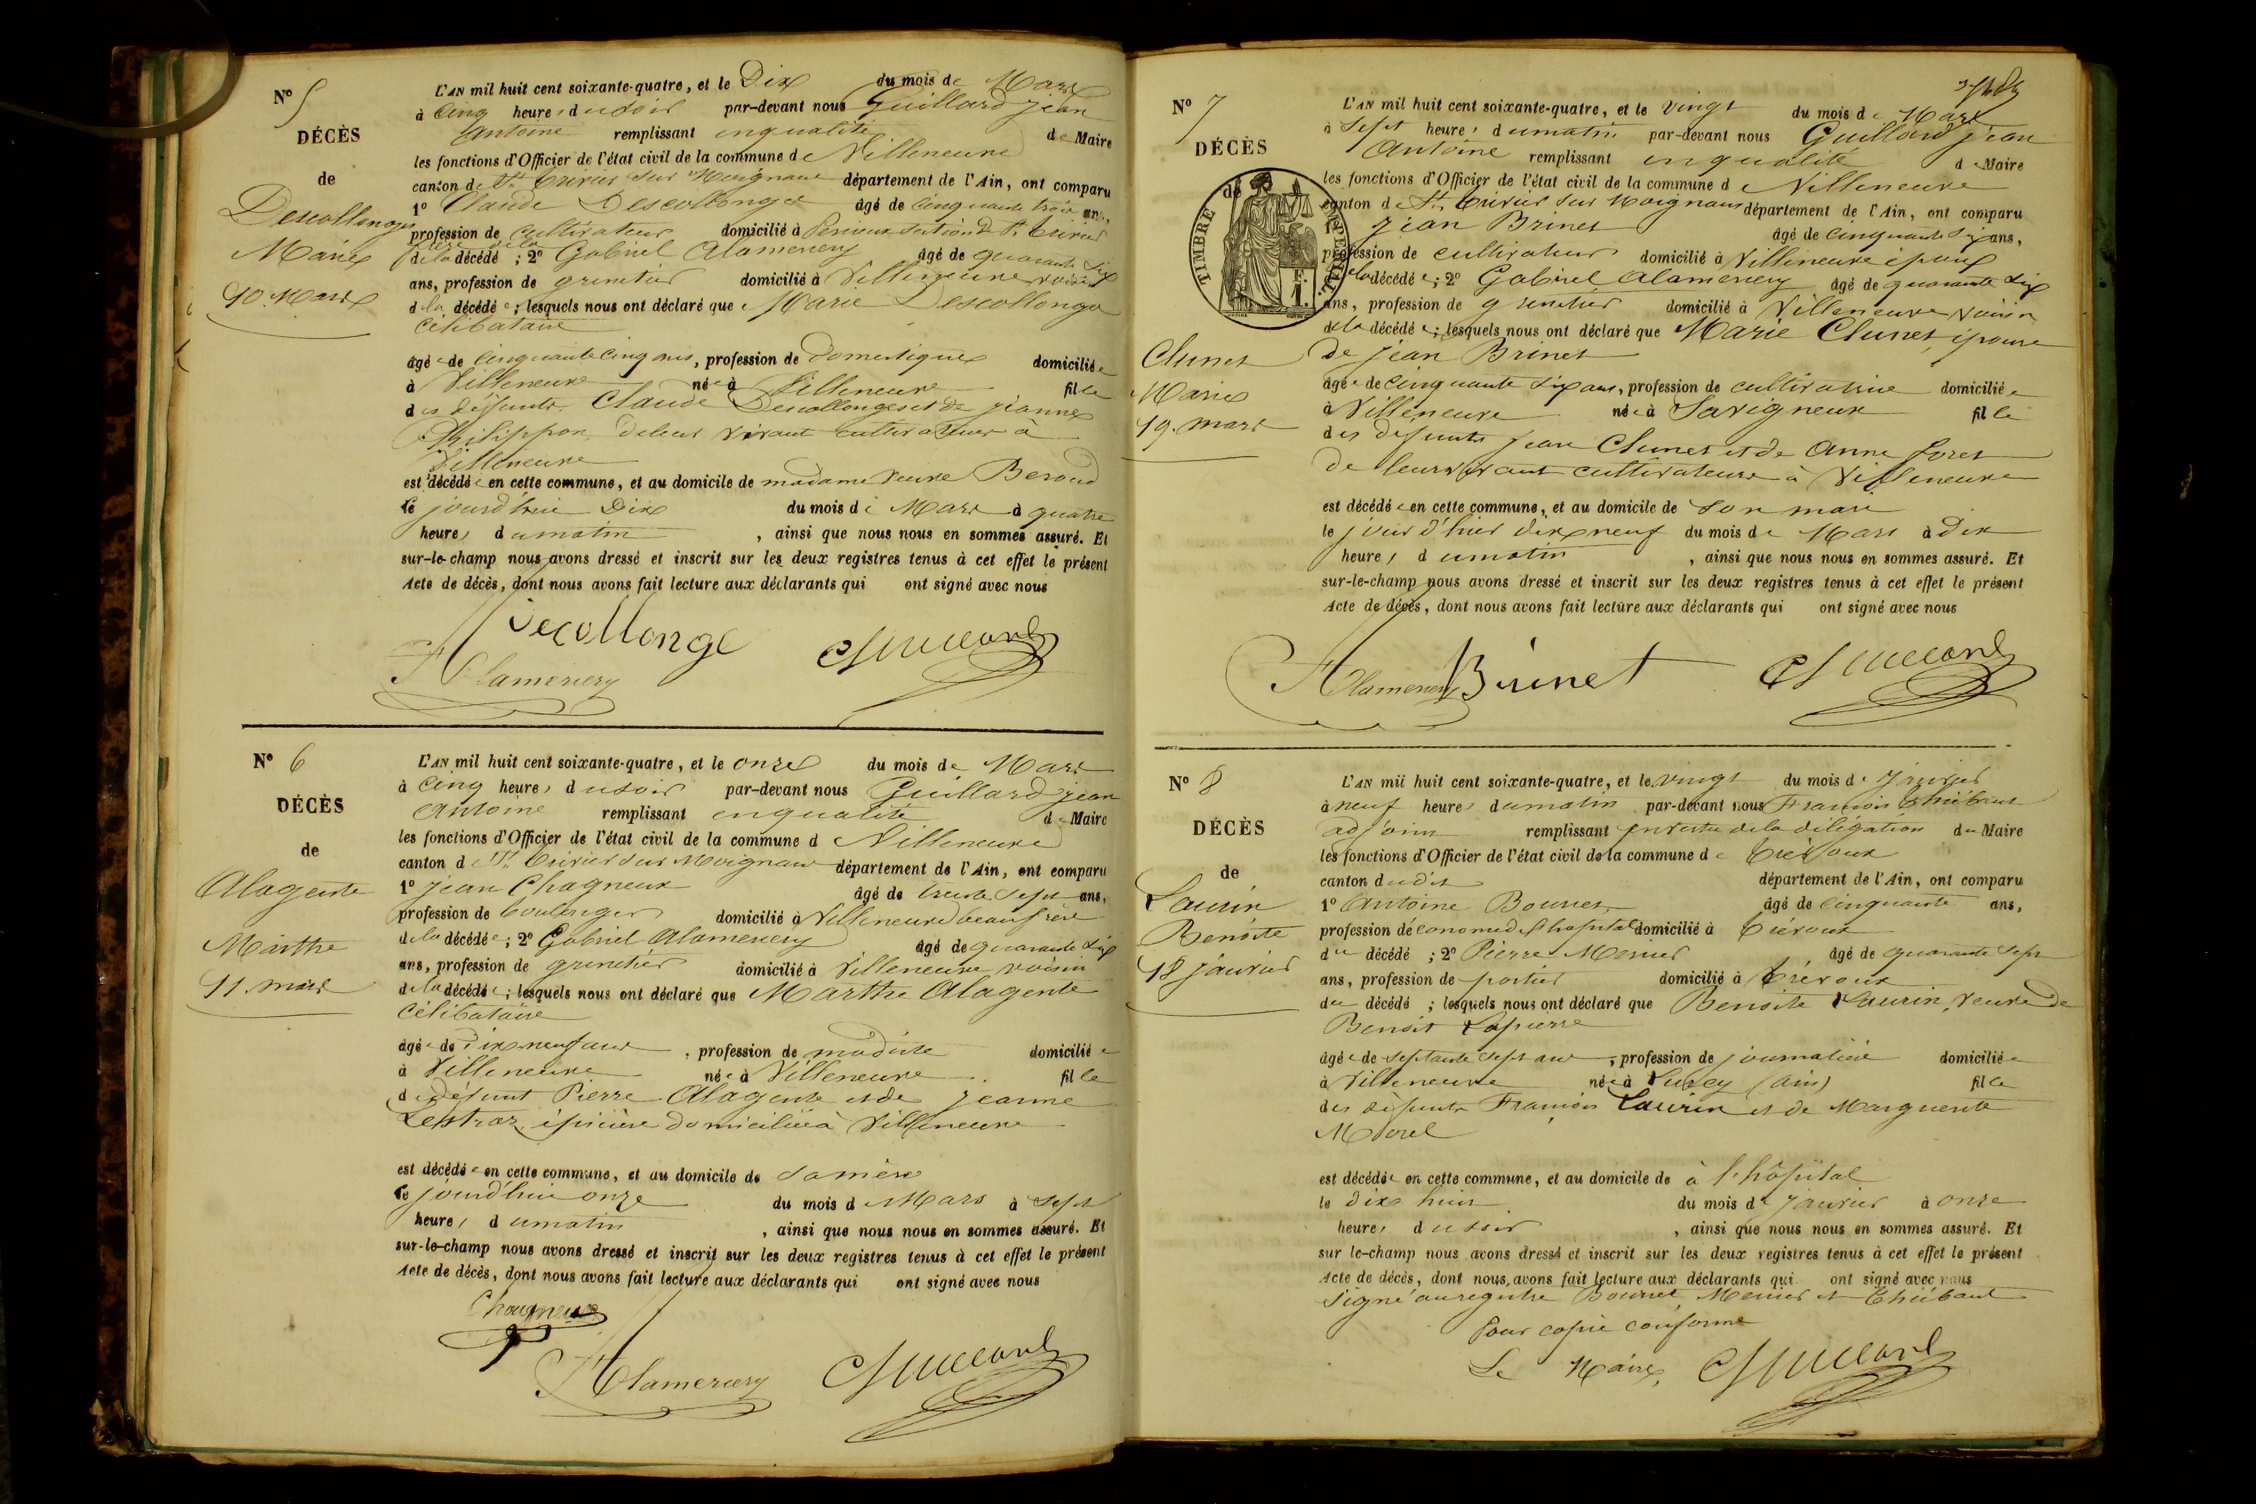 N° 5
DÉCÈS
de
Descollonges
Marie
10. Mars
L'AN mil huit cent soixante-quatre, et le Dix du mois de Mars
à cinq heures du soir par-devant nous Guillard jean
Antoine remplissant en qualité de Maire
les fonctions d'Officier de l'état civil de la commune de Villeneuve
canton de St. Trivier sur Moignans département de l'Ain, ont comparu
1° Claude Descollonge âgé de cinquante trois ans,
profession de cultivateur domicilié à St. Trivier
frère de la
de la décédé ; 2° Gabriel Alamercery âgé de quarante six
ans, profession de grenetier domicilié à Villeneuve voisin
de la décédée ; lesquels nous ont déclaré que Marie Descollonge
célibataire
âgée de cinquante cinq ans, profession de domestique domiciliée
à Villeneuve née à Villeneuve fille
des défunts Claude Descollonges et de jeanne
Philippon de leur vivant cultivateurs à
Villeneuve
est décédée en cette commune, et au domicile de madame veuve Beroud
le jourd'hui Dix du mois de Mars à quatre
heures du matin, ainsi que nous nous en sommes assuré. Et
sur-le-champ nous avons dressé et inscrit sur les deux registres tenus à cet effet le présent
Acte de décès, dont nous avons fait lecture aux déclarants qui ont signé avec nous
Decollonge Guillard
Alamercery
N° 6
DÉCÈS
de
Alagente
Marthe
11. mars
L'AN mil huit cent soixante-quatre, et le onze du mois de Mars
à cinq heures du soir par-devant nous Guillard jean
Antoine remplissant en qualité de Maire
les fonctions d'Officier de l'état civil de la commune d Villeneuve
canton de St. Trivier sur Moignans département de l'Ain, ont comparu
1° jean Chagneux âgé de trente sept ans,
profession de boulanger domicilié à Villeneuve beau frère
de la décédée ; 2° Gabriel Alamercery âgé de quarante six
ans, profession de grenetier domicilié à Villeneuve voisin
de la décédée ; lesquels nous ont déclaré que Marthe Alagente
célibataire
âgée de dix neuf ans, profession de modiste domiciliée
à Villeneuve née à Villeneuve fille
de défunt Pierre Alagente et de jeanne
épicière domiciliée à Villeneuve
est décédée en cette commune, et au domicile de sa mère
le jourd'hui onze du mois de Mars à sept
heures du matin, ainsi que nous nous en sommes assuré. Et
sur-le-champ nous avons dressé et inscrit sur les deux registres tenus à cet effet le présent
Acte de décès, dont nous avons fait lecture aux déclarants qui ont signé avec nous
Chagneux
Alamercery Guillard
N° 7
DÉCÈS
de
TIMBRE IMPÉRIAL
1 F.
Clunet
Marie
19. mars
L'AN mil huit cent soixante-quatre, et le vingt du mois de Mars
à sept heures du matin par-devant nous Guillard jean
Antoine remplissant en qualité de Maire
les fonctions d'Officier de l'état civil de la commune de Villeneuve
canton de St. Trivier sur Moignans département de l'Ain, ont comparu
1° jean Brinet âgé de cinquante six ans,
profession de cultivateur domicilié à Villeneuve époux
de la décédée ; 2° Gabriel Alamercery âgé de quarante six
ans, profession de grenetier domicilié à Villeneuve voisin
de la décédée ; lesquels nous ont déclaré que Marie Clunet, épouse
de jean Brinet
âgée de cinquante six ans, profession de cultivatrice domiciliée
à Villeneuve née à Savigneux fille
des défunts jean Clunet et de Anne Foret
de leur vivant cultivateurs à Villeneuve
est décédée en cette commune, et au domicile de son mari
le jour d'hier dix neuf du mois de Mars à dix
heures du matin, ainsi que nous nous en sommes assuré. Et
sur-le-champ nous avons dressé et inscrit sur les deux registres tenus à cet effet le présent
Acte de décès, dont nous avons fait lecture aux déclarants qui ont signé avec nous
Alamercery Brinet Guillard
N° 8
DÉCÈS
de
Laurin
Benoite
18 janvier
L'AN mil huit cent soixante-quatre, et le vingt du mois de janvier
à neuf heures du matin par-devant nous François Thiébaut
adjoint remplissant en vertu de la délégation du Maire
les fonctions d'Officier de l'état civil de la commune de Trévoux
canton du dit département de l'Ain, ont comparu
1° Antoine Bourret âgé de cinquante ans,
profession d'économe de l'hôpital domicilié à Trévoux
du décédé ; 2° Pierre Mercier âgé de quarante sept
ans, profession de portier domicilié à Trévoux
du décédé ; lesquels nous ont déclaré que Benoite Laurin, veuve de
Benoit Lapierre
âgée de septante sept ans, profession de journalière domiciliée
à Villeneuve née à Lurcy (Ain) fille
des défunts François Laurin et de Marguerite
Morel
est décédée en cette commune, et au domicile de à l'hôpital
le dix huit du mois de janvier à onze
heures du soir, ainsi que nous nous en sommes assuré. Et
sur le-champ nous avons dressé et inscrit sur les deux registres tenus à cet effet le présent
Acte de décès, dont nous avons fait lecture aux déclarants qui ont signé avec nous
Signé au registre Bourret Mercier et Thiébaut
Pour copie conforme
Le Maire, Guillard